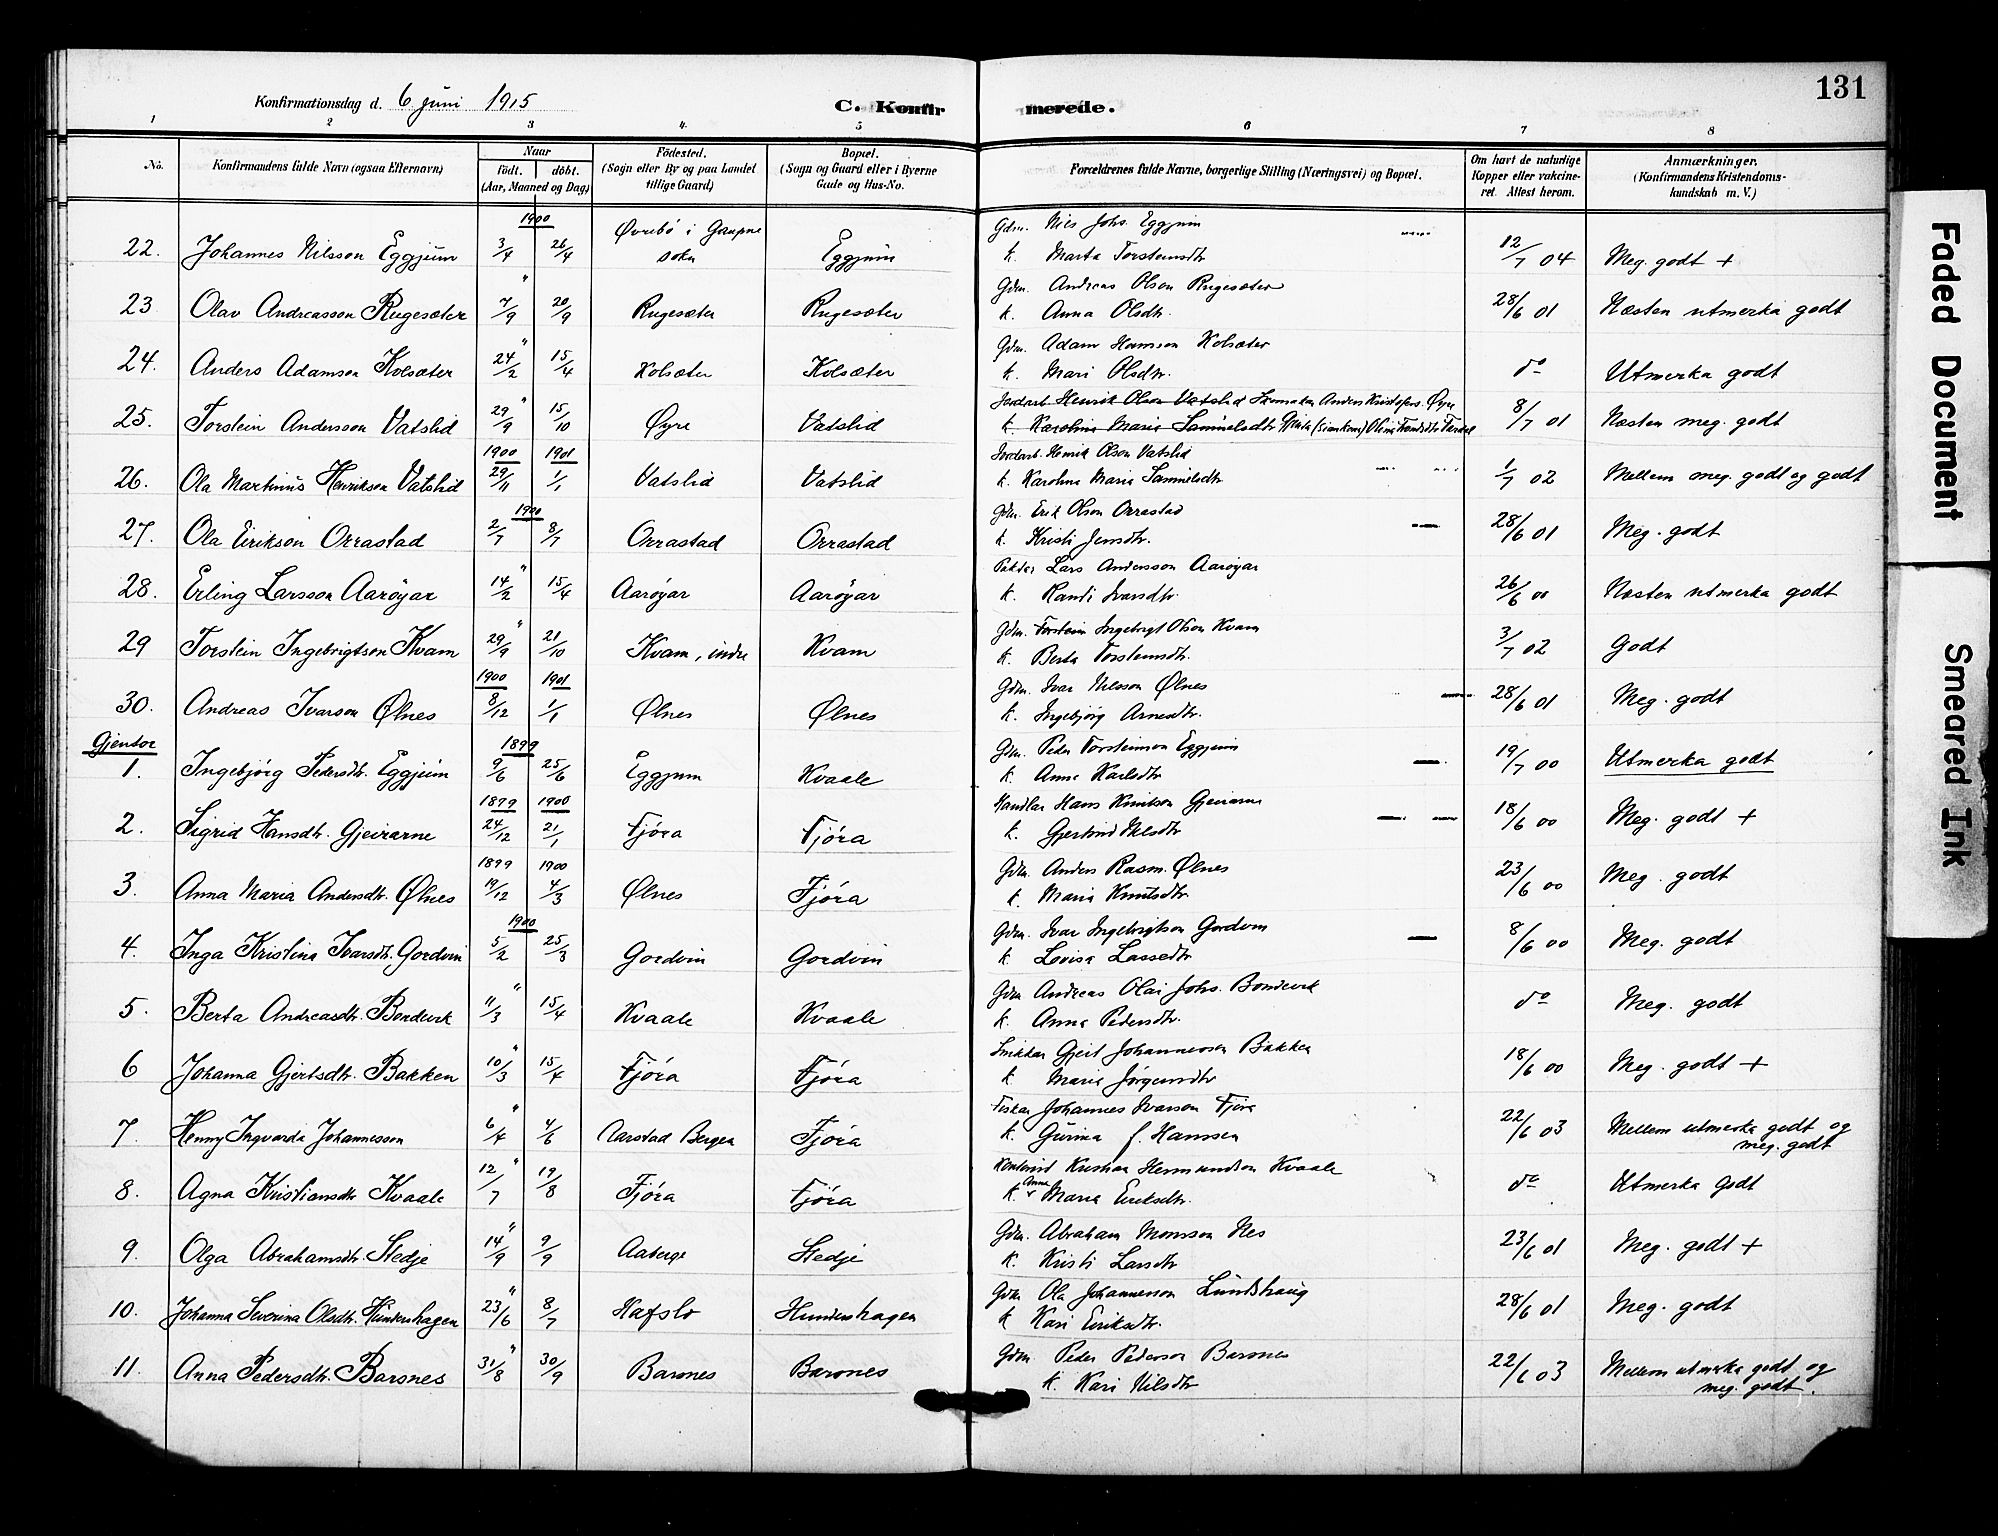 131
Konfirmationsdag d. 6 juni 1915
C. Konfirmerede.
1 2 3 4. 5 6 7 8
No. Konfirmandens fulde Navn (ogsaa Efternavn) Naar født. døbt. (Aar, Maaned og Dag) Fødested. (Sogn eller By og paa Landet tillige Gaard) Bopæl. (Sogn og Gaard eller i Byerne Gade og Hus-No. Forældrenes fulde Navne, borgerlige Stilling (Næringsvei) og Bopæl. Om havt de naturlige Kopper eller vakcineret. Attest herom. Anmærkninger. (Konfirmandens Kristendomskundskab m. V.)
1900 Øvrebö i Gaupne Gdm. Nils Johs. Eggjum
22. Johannes Nilsson Eggjum 3/4 26/4 sokn Eggjum k. Marta Torsteinsdtr 12/7 04 Meg. godt +
" Gdm. Andreas Olson Rugesæter
23 Olav Andreasson Rugesæter 7/9 20/9 Rugesæter Rugesæter k. Anna Olsdtr. 28/6 01 Næsten utmerka godt
" Gdm. Adam Hansson Kolsæter
24. Anders Adamson Kolsæter 24/2 15/4 Kolsæter Kolsæter k. Mari Olsdtr. do Utmerka godt
" Jordarb Henrik Olson Vatslid Skomaker Anders Kristofers. Øyre
25. Torstein Andersson Vatslid 29/9 15/10 Øyre Vatslid k. Karolina Maria Samuelsdtr 8/7 01 Næsten meg. godt
1900 1901 Jordarb. Henrik Olson Vatslid
26. Ola Martinus Henriksen Vatslid 29/11 1/1 Vatslid Vatslid k. Karolina Maria Samuelsdtr 1/7 02 Mellem meg. godt og godt
1900 Gdm. Erik Olson Orrastad
27. Ola Eirikson Orrastad 2/7 8/7 Orrastad Orrastad k. Kristi Jensdtr. 28/6 01 Meg. godt
" Lars Andersson Aarøyar
28. Erling Larsson Aarøyar 14/2 15/4 Aarøyar Aarøyar k. Randi Ivarsdtr. 26/6 00 Næsten utmerka godt
" Gdm. Torstein Ingebrigt Olson Kvam
29 Torstein Ingebrigtson Kvam 29/9 21/10 Kvam, indre Kvam k. Berta Torsteinsdtr. 3/7 02 Godt
1900 1901 Gdm. Ivar Nilsson Ølnes
30. Andreas Ivarson Ølnes 8/12 1/1 Ølnes Ølnes k. Ingebjørg Arnesdtr. 28/6 01 Meg. godt
Gjentor 1899 Gdm. Peder Torsteinson Eggjum
1. Ingebjørg Pedersdtr. Eggjum 9/6 25/6 Eggjum Kvaale k. Anna Karlsdtr 19/7 00 Utmerka godt
1899 1900 Handlar Hans Knutson Gjeirarne
2. Sigrid Hansdtr. Gjeirarne 24/12 21/1 Fjöra Fjöra k. Gjertrud Nilsdtr 18/6 00 Meg. godt +
1899 1900 Gdm. Anders Rasm. Ølnes
3. Anna Maria Andersdtr. Ølnes 19/12 4/3 Ølnes Fjöra k. Maria Knutsdtr. 23/6 00 Meg. godt
1900 Gdm. Ivar Ingebrigtson Gordvin
4. Inga Kristina Ivarsdtr. Gordvin 5/2 25/3 Gordvin Gordvin k. Lovisa Lassedtr 8/6 00 Meg. godt
" Gdm Andreas Olai Johs. Bondevik
5. Berta Andreasdtr. Bondevik 11/3 15/4 Kvaale Kvaale k. Anna Pedersdtr. do Meg. godt
" Snikkar Gjert Johannessen Bakken
6 Johanna Gjertsdtr. Bakken 10/3 15/4 Fjöra Fjöra k Maria Jørgensdtr 18/6 00 Meg. godt +
" Fiskar Johannes Ivarson Fjöra
7. Henny Ingvarda Johannesson 6/4 4/6 Aarstad Bergen Fjöra k. Gurina f. Hanssen 22/6 03 Mellem utmerka godt og
meg. godt
" Kristian Hermundson Kvaale
8. Agna Kristiansdtr Kvaale 12/7 19/8 Fjöra Fjöra k. Anna Maria Eiriksdtr. do Utmerka godt
" Gdm. Abraham Monsson Nes
9. Olga Abrahamsdtr. Stedje 14/9 9/9 Aaberge Stedje k. Kristi Larsdtr 23/6 01 Meg. godt +
" Gdm Ola Johannesson Lundshaug
10. Johanna Severina Olsdtr. Hundershagen 23/6 8/7 Hafslo Hundershagen k Kari Eiriksdtr. 28/6 01 Meg. godt
" Gdm Peder Pederson Barsnes
11. Anna Pedersdtr. Barsnes 31/8 30/9 Barsnes Barsnes k. Kari Nilsdtr 22/6 03 Mellem utmerka godt og
meg. godt.
Faded Document
Smeared Ink